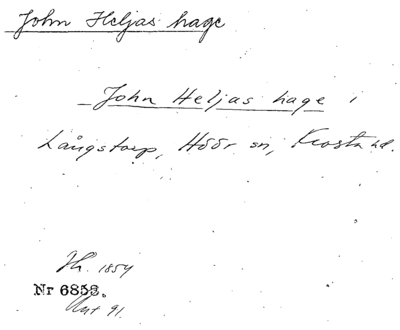 John Heljas hage
John Heljas hage i
Långstorp, Höör sn, Frosta hd.
Th. 1854
Nr 6853.
Ant 91.